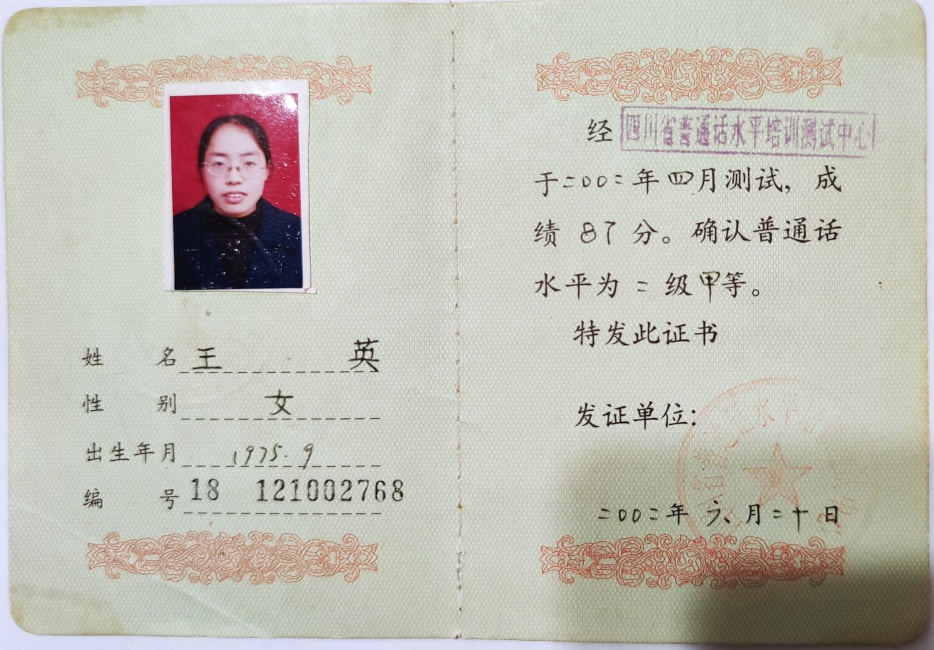 姓 名 王 英
性 别 女
出生年月 1975.9
编 号 18 121002768
经 四川省普通话水平培训测试中心
于二00二年四月测试，成
绩 87 分。确认普通话
水平为 二 级甲等。
特发此证书
发证单位：
二00二年 六 月二十日